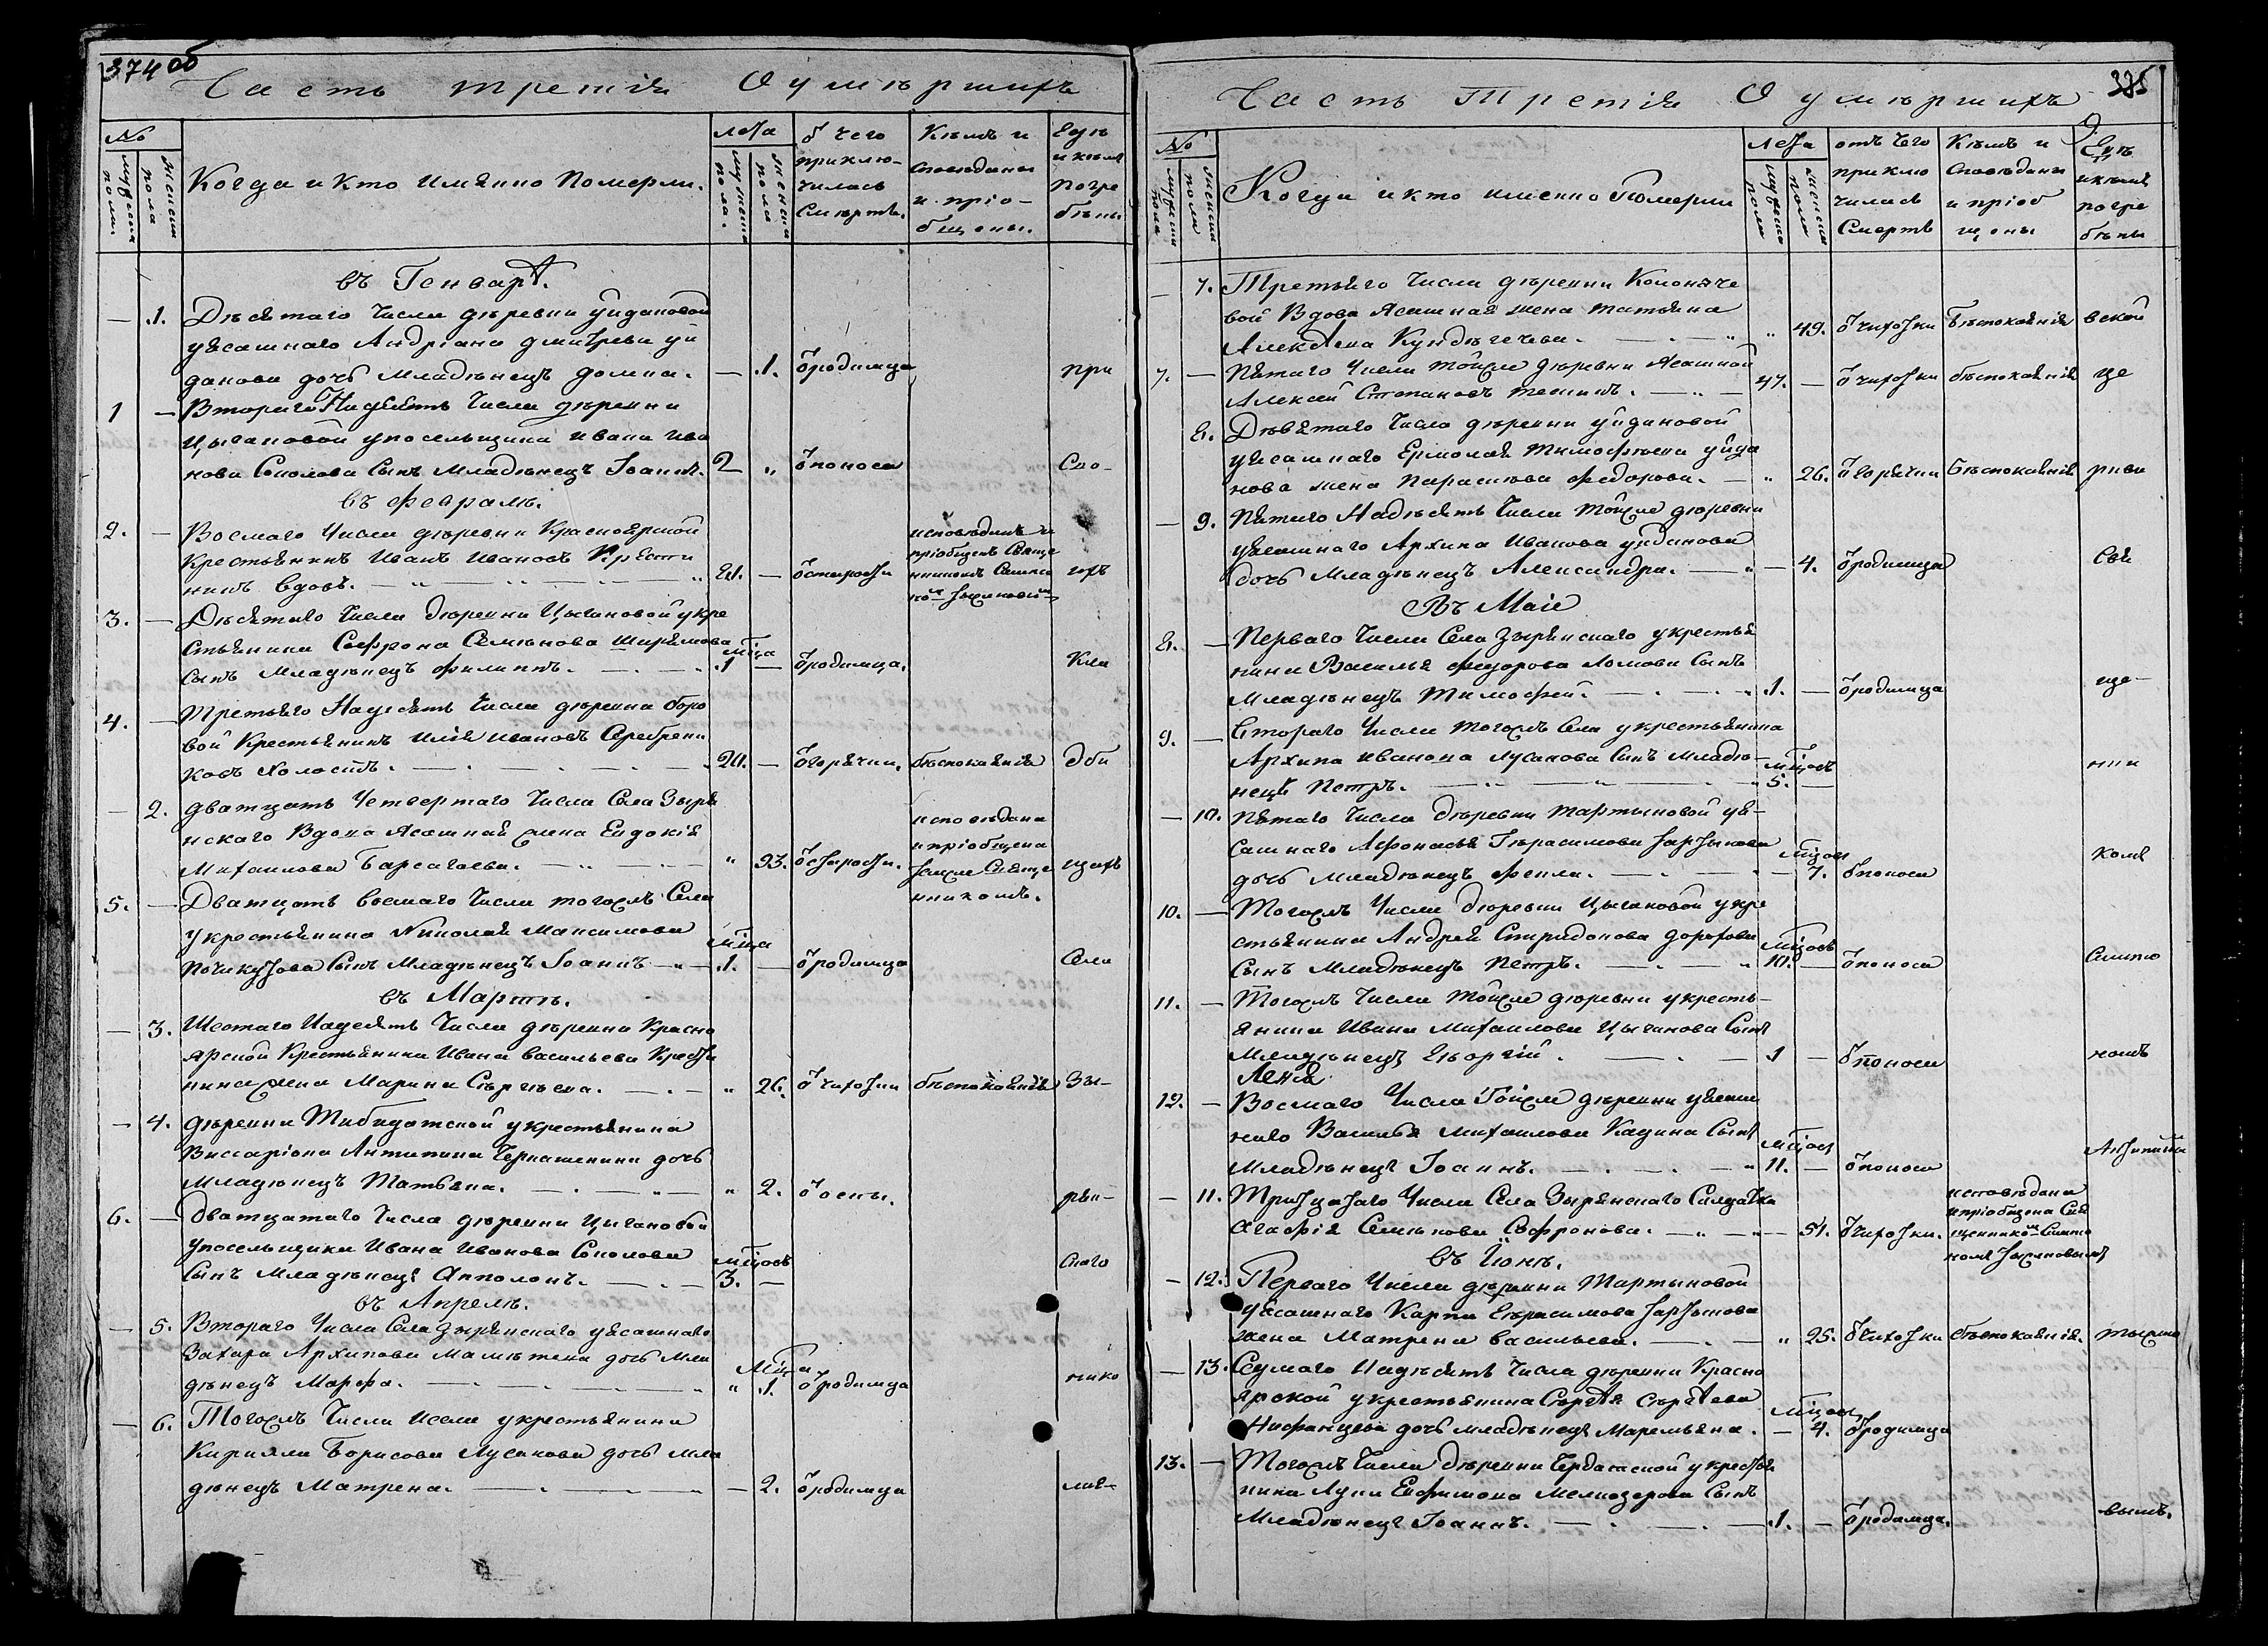 374 об
Часть третія О умѣршихъ
№
мужеска пола
женска пола
Когда и кто имянно померли.
Лета
мужеска пола.
женска пола
Ѿ чего приклю-
чилась
смѣрть.
Кѣмъ и
споведаны
и пріо-
бщены.
Где
и кемъ
погре
бены
въ Генваре.
.1. Десятаго числа деревни уйдановой
уясашнаго Андріана Дмитрева уй
данова дочь младенецъ Домна. — .1. Ѿ родимца при
1 — Втораго надесять числа деревни
Цыгановой упосельщика Ивана Ива
нова Соколова сынъ младенецъ Іоаннъ. 2 „ Ѿ поноса Схо-
въ феврале.
2. — Восмаго числа деревни Красноярской исповеданъ и
крестьянинъ Иванъ Ивановъ Крести пріобщенъ Свяще
нинъ вдовъ. — Ѿ старости никомъ
3. — Десятаго числа деревни Цыгановой укре
стьянина Софрона Семенова мца
сынъ младенецъ Филиппъ. .1 — Ѿ родимца. Кла
4. — Третьяго надесять числа деревни боро
вой крестьянинъ Илія Ивановъ Серебрени
ковъ холостъ. — Ѿ горячки. беспокаянія дби
— 2. Дватцать четвертаго числа Села Зыря исповедана
нскаго вдова ясашная жена Евдокія и пріобщена
Михаилова Барсагаева. „ 93. Ѿ старости. Свяще щахъ
никомъ.
5. — Дватцать восмаго числа тогожъ Села
укрестьянина Николая Максимова мца
Почекутова сынъ младенецъ Іоаннъ .1. — Ѿ родимца Села
въ Марте.
— 3. Шестаго надесять числа деревни Красно
ярской крестьянина Ивана Васильева Крести
нина жена Марина Сергеева. „ 26. Ѿ чихотки беспокаянія Зы-
— 4. деревни укрестьянина
Виссаріона Антипина дочь
младенецъ Татьяна. „ 2. Ѿ оспы. рян-
6. — Дватцатаго числа деревни Цыгановой
упосельщика Ивана Иванова Соколова мцовъ
сынъ младенецъ Апполонъ. 3. — скаго
въ Апреле.
— 5. Втораго числа Села Зырянскаго уясашнаго
Захара Архипова дочь мла мца
денецъ Марфа. „ .1. Ѿ родимца нико
— 6. Тогожъ числа исела укрестьянина
Кирилла Борисова Лусанова дочь мла
денецъ Матрена. — 2. Ѿ родимца лае-
375
Часть Третія О умершихъ
№
мужеска пола
женска пола
Когда и кто именно померли
Лета
мужеска пола
женска пола
отъ чего
приклю
чилась
смерть
Кемъ и
споведаны
и пріоб
щены
Где
и кемъ
погре
бены
— 7. Третьяго числа деревни
вой вдова ясашная жена Татьяна
Алексеева Кундегечева. „ 49. Ѿ чихотки беспокаянія вской
7. — Пятаго числа тойже деревни ясашной
Алексей Степановъ 47. — Ѿ чихотки беспокаянія це
8. Девятаго числа деревни уйдановой
уясашнаго Ермолая Тимофеева уйда
нова жена Парасковва Федорова. „ 26. Ѿ горячки беспокаянія ркви
— 9. Пятаго надесять числа тойже деревни
уясашнаго Архипа Иванова уйданова
дочь младенецъ Александра. — 4. Ѿ родимца Свя
Въ Маіе
8. — Перваго числа Села Зырянскаго укрестья
нина Василья Федорова Ломова сынъ
младенецъ Тимофей. .1. — Ѿ родимца ще-
9. — Втораго числа тогожъ Села укрестьянина
Архипа Иванова Лусанова сынъ младе- мцовъ
нецъ Петръ. 5. — нни
— 10. Пятаго числа деревни Мартыновой уя-
сашнаго Афонасья Герасимова мцовъ
дочь младенецъ Фекла. — 7. Ѿ поноса комъ
10. — Тогожъ числа деревни Цыгановой укре
стьянина Андрея Спиридонова Дорохова мцовъ
сынъ младенецъ Петръ. 10. — Ѿ поноса Симео
11. — Тогожъ числа тойже деревни укресть-
янина Ивана Михаилова Цыганова сынъ
младенецъ Георгій. 1 — Ѿ поноса номъ
12. — Восмаго числа тойже деревни уясаш
наго Василья Михаилова Кадина сынъ мцовъ
младенецъ Іоаннъ. 11. — Ѿ поноса
— 11. Тритцатаго числа Села Зырянскаго Салдатка исповедана
Агафія Семенова Софронова. — 51. Ѿ чихотки. и пріобщена Свя
щенником Симео
номъ
въ Іюне.
— 12. Перваго числа деревни Мартыновой
уясашнаго Карпа Герасимова
жена Матрена Васильева. „ 25. Ѿ чихотки беспокаянія.
— 13. Седмаго надесять числа деревни Красно
ярской укрестьянина Сергея Сергеева мцовъ
Нифанцева дочь младенецъ Маремьяна. — 4. Ѿ родимца
13. — Тогожъ числа деревни Чердатской укрестья
нина Луки Ефимова сынъ
младенецъ Іоаннъ. .1. — Ѿ родимца. вымъ.